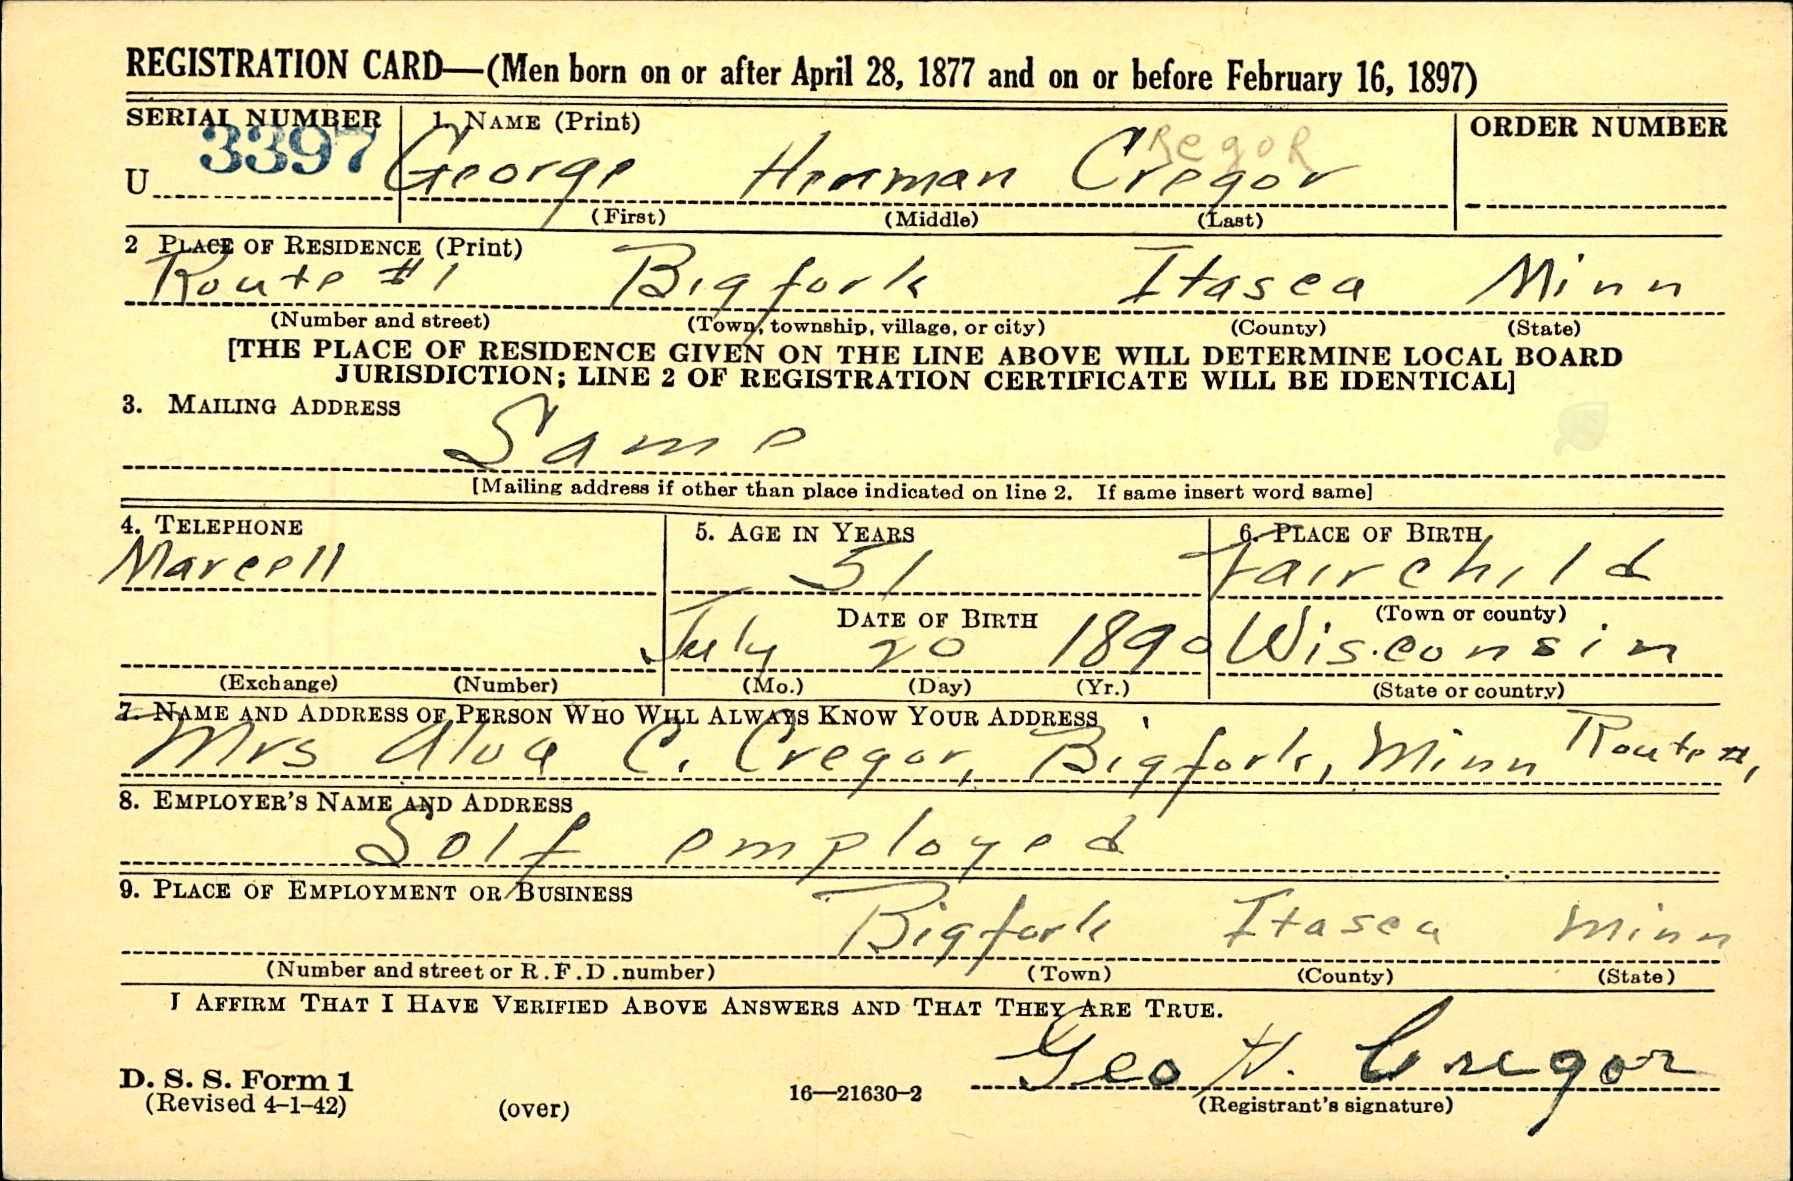 REGISTRATION CARD—(Men born on or after April 28, 1877 and on or before February 16, 1897)
SERIAL NUMBER 1. NAME (Print) ORDER NUMBER
RegoR
U 3397 George Herman Cregor
(First) (Middle) (Last)
2 PLACE OF RESIDENCE (Print)
Route #1 Bigfork Itasca Minn
(Number and street) (Town, township, village, or city) (County) (State)
[THE PLACE OF RESIDENCE GIVEN ON THE LINE ABOVE WILL DETERMINE LOCAL BOARD
JURISDICTION; LINE 2 OF REGISTRATION CERTIFICATE WILL BE IDENTICAL]
3. MAILING ADDRESS
Same
[Mailing address if other than place indicated on line 2. If same insert word same]
4. TELEPHONE 5. AGE IN YEARS 6. PLACE OF BIRTH
Marcell 51 Fairchild
DATE OF BIRTH (Town or county)
July 20 1890 Wisconsin
(Exchange) (Number) (Mo.) (Day) (Yr.) (State or country)
7. NAME AND ADDRESS OF PERSON WHO WILL ALWAYS KNOW YOUR ADDRESS
Mrs Alva C. Cregor, Bigfork, Minn Route #1
8. EMPLOYER'S NAME AND ADDRESS
Self employed
9. PLACE OF EMPLOYMENT OR BUSINESS
Bigfork Itasca Minn
(Number and street or R.F.D. number) (Town) (County) (State)
I AFFIRM THAT I HAVE VERIFIED ABOVE ANSWERS AND THAT THEY ARE TRUE.
Geo H. Cregor
D. S. S. Form 1
(Revised 4-1-42) (over) 16—21630-2 (Registrant's signature)